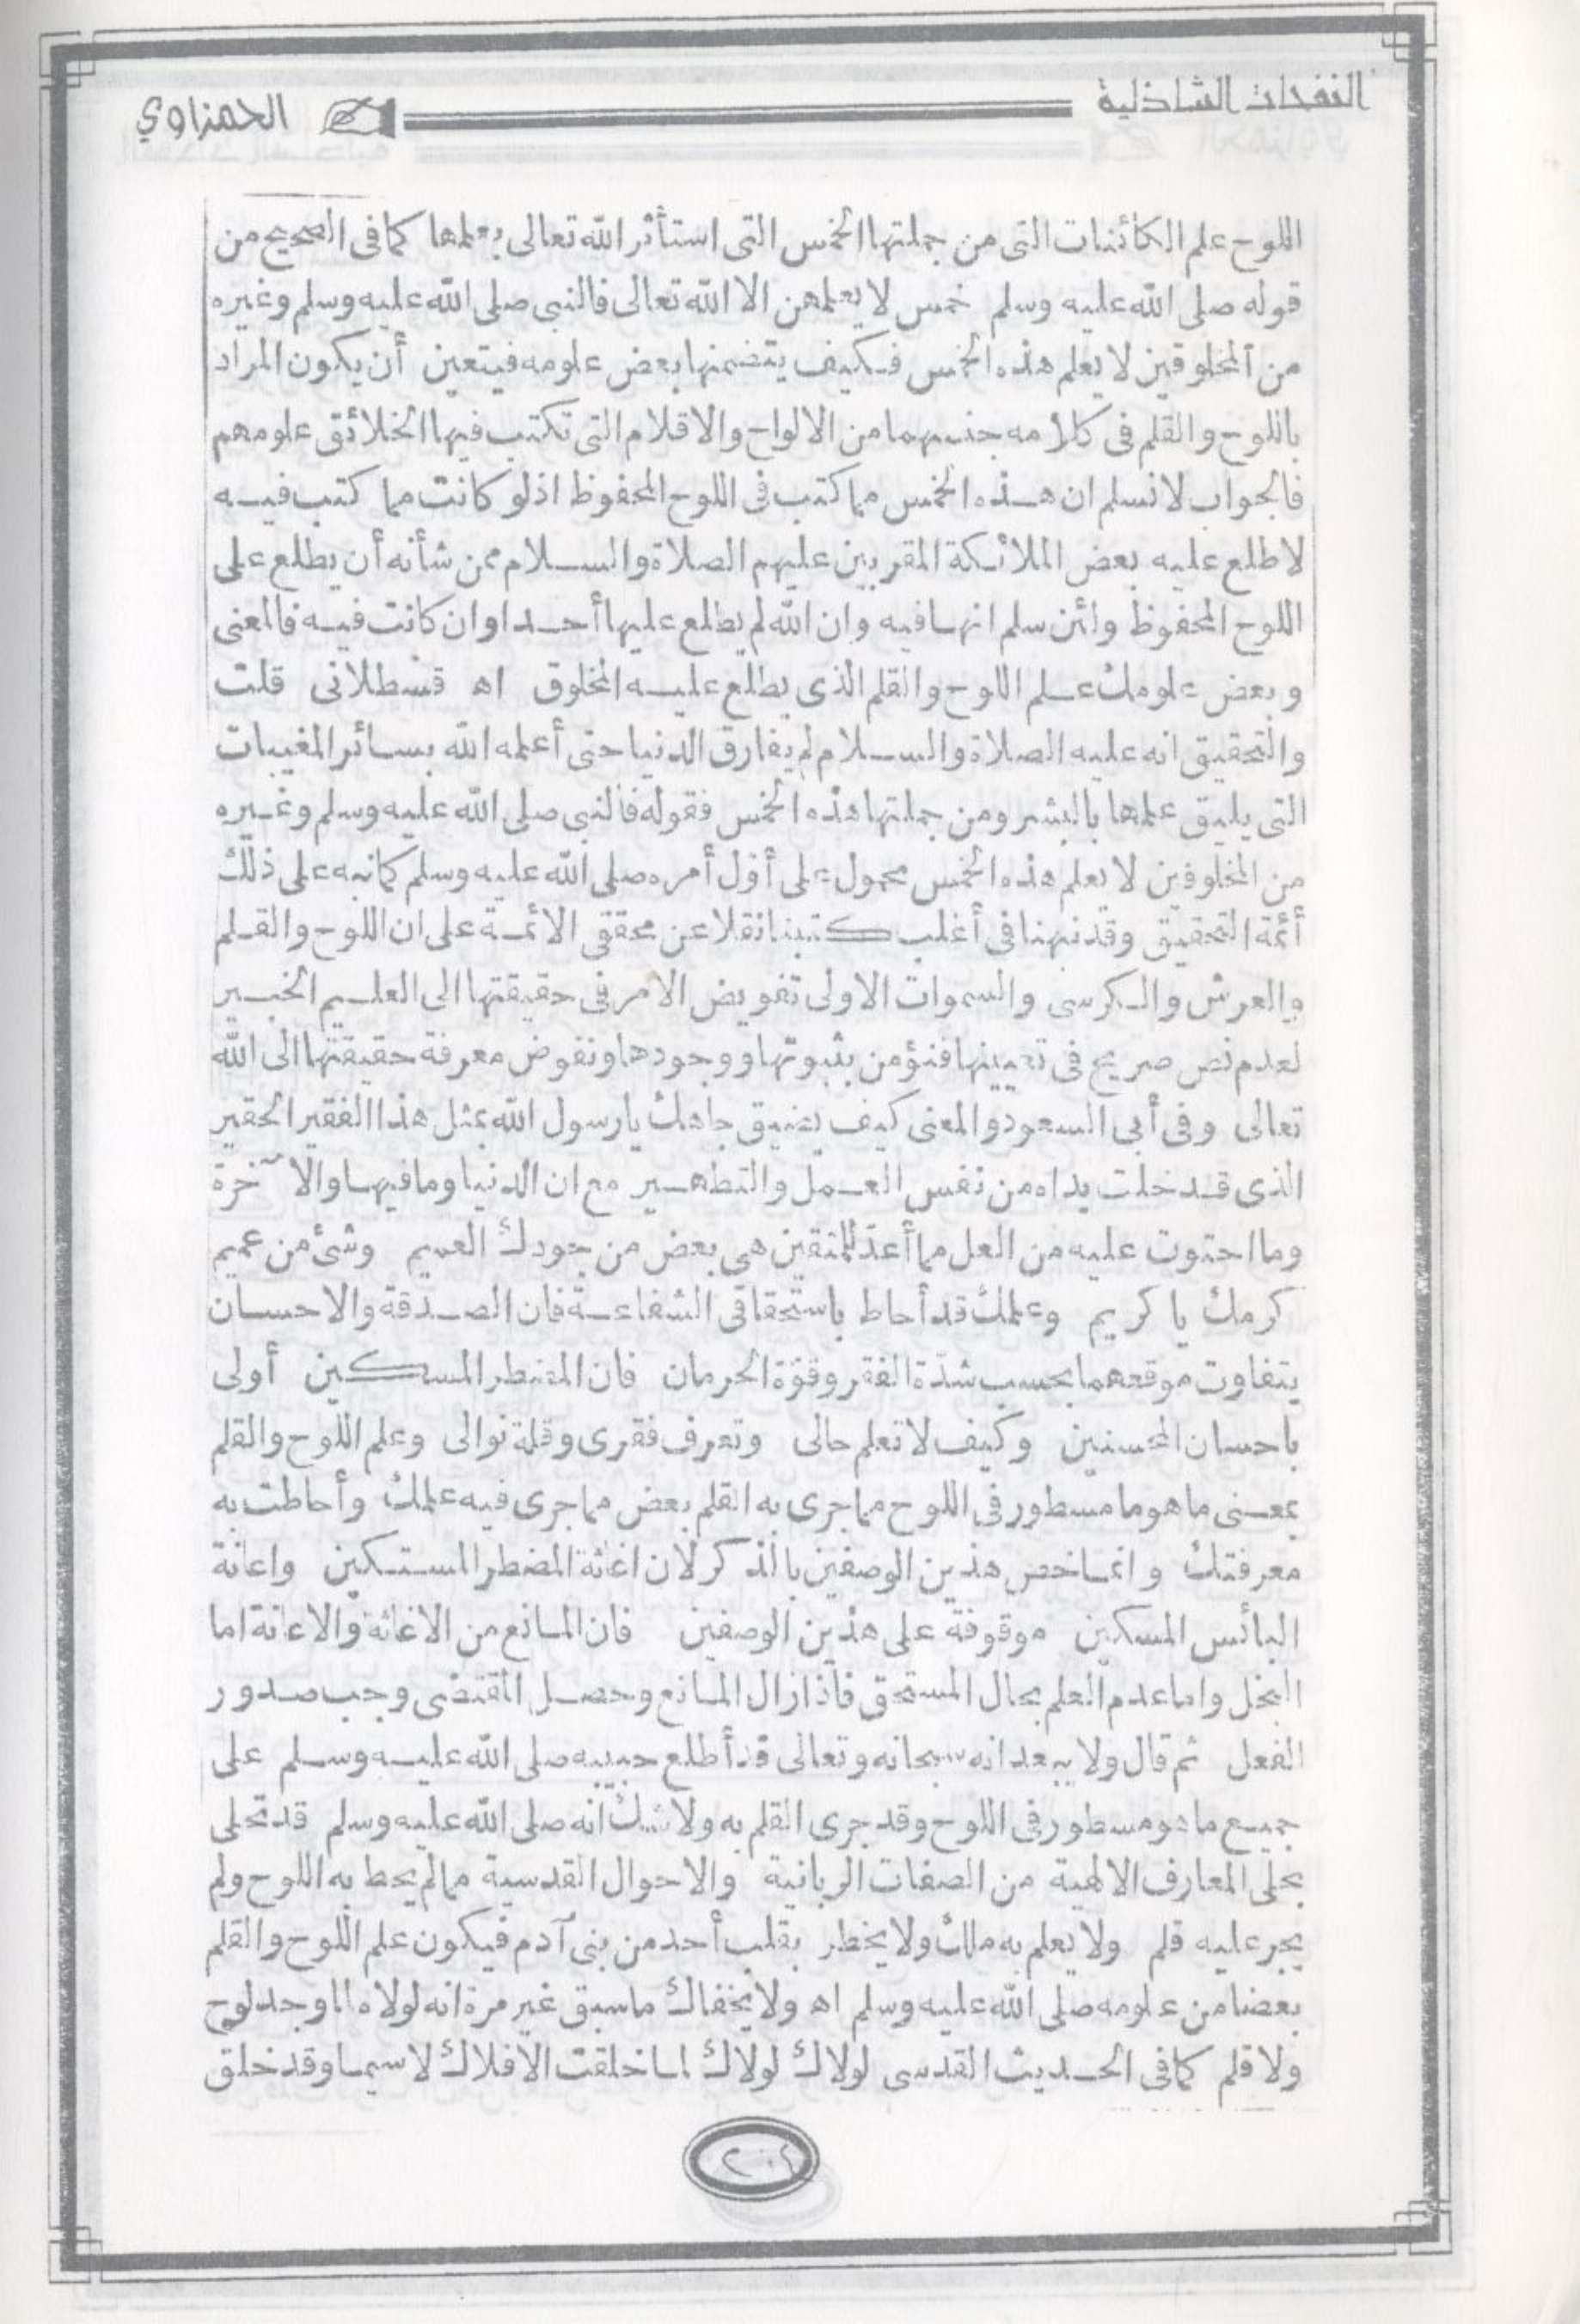 النفحات الشاذلية
الحمزاوي
اللوح علم الكائنات التى من جملتها الخمس التى استأثر الله تعالى بعلمها كما فى الصحيح من
قوله صلى الله عليه وسلم خمس لا يعلمهن الا الله تعالى فالنبى صلى الله عليه وسلم وغيره
من المخلوقين لا يعلم هذه الخمس فكيف يتضمنها بعض علومه فيتعين أن يكون المراد
باللوح والقلم فى كلامه جنسهما من الالواح والاقلام التى تكتب فيها الخلائق علومهم
فالجواب لا نسلم ان هذه الخمس مما كتب فى اللوح المحفوظ اذ لو كانت مما كتب فيه
لاطلع عليه بعض الملائكة المقربين عليهم الصلاة والسلام ممن شأنه أن يطلع على
اللوح المحفوظ ولئن سلم انها فيه وان الله لم يطلع عليها أحدا وان كانت فيه فالمعنى
وبعض علومك علم اللوح والقلم الذى يطلع عليه المخلوق اه قسطلانى قلت
والتحقيق انه عليه الصلاة والسلام لم يفارق الدنيا حتى أعلمه الله بسائر المغيبات
التى يليق علمها بالبشر ومن جملتها هذه الخمس فقوله فالنبى صلى الله عليه وسلم وغيره
من المخلوقين لا يعلم هذه الخمس محمول على أول أمره صلى الله عليه وسلم كما نبه على ذلك
أئمة التحقيق وقد نبهنا فى أغلب كتبنا نقلا عن محققى الائمة على ان اللوح والقلم
والعرش والكرسى والسموات الاولى تفويض الامر فى حقيقتها الى العليم الخبير
لعدم نص صريح فى تعيينها فنؤمن بثبوتها ووجودها ونفوض معرفة حقيقتها الى الله
تعالى وفى أبى السعود والمعنى كيف يضيق جاهك يا رسول الله بمثل هذا الفقير الحقير
الذى قد خلت يداه من نفس العمل والتطهير مع ان الدنيا وما فيها والآخرة
وما احتوت عليه من العل مما أعد للمتقين هى بعض من جودك العميم وشئ من عميم
كرمك يا كريم وعلمك قد أحاط باستحقاقى الشفاعة فان الصدقة والاحسان
يتفاوت موقعهما بحسب شدة الفقر وقوة الحرمان فان المضطر المسكين أولى
باحسان المحسنين وكيف لا تعلم حالى وتعرف فقرى وقلة نوالى وعلم اللوح والقلم
بمعنى ما هو ما مسطور فى اللوح مما جرى به القلم بعض مما جرى فيه علمك وأحاطت به
معرفتك وانما خص هذين الوصفين بالذكر لان اغاثة المضطر المستكين واعانة
البائس المسكين موقوفة على هذين الوصفين فان المانع من الاغاثة والاعانة اما
البخل واما عدم العلم بحال المستحق فاذا زال المانع وحصل المقتضى وجب صدور
الفعل ثم قال ولا يبعد انه سبحانه وتعالى قد أطلع حبيبه صلى الله عليه وسلم على
جميع ما هو مسطور فى اللوح وقد جرى القلم به ولا شك انه صلى الله عليه وسلم قد تحلى
بحلى المعارف الالهية من الصفات الربانية والاحوال القدسية ما لم يحط به اللوح ولم
يجر عليه قلم ولا يعلم به ملك ولا يخطر بقلب أحد من بنى آدم فيكون علم اللوح والقلم
بعضا من علومه صلى الله عليه وسلم اه ولا يخفاك ما سبق غير مرة انه لولاه لما وجد لوح
ولا قلم كما فى الحديث القدسى لولاك لولاك لما خلقت الافلاك لا سيما وقد خلق
٢٠٤